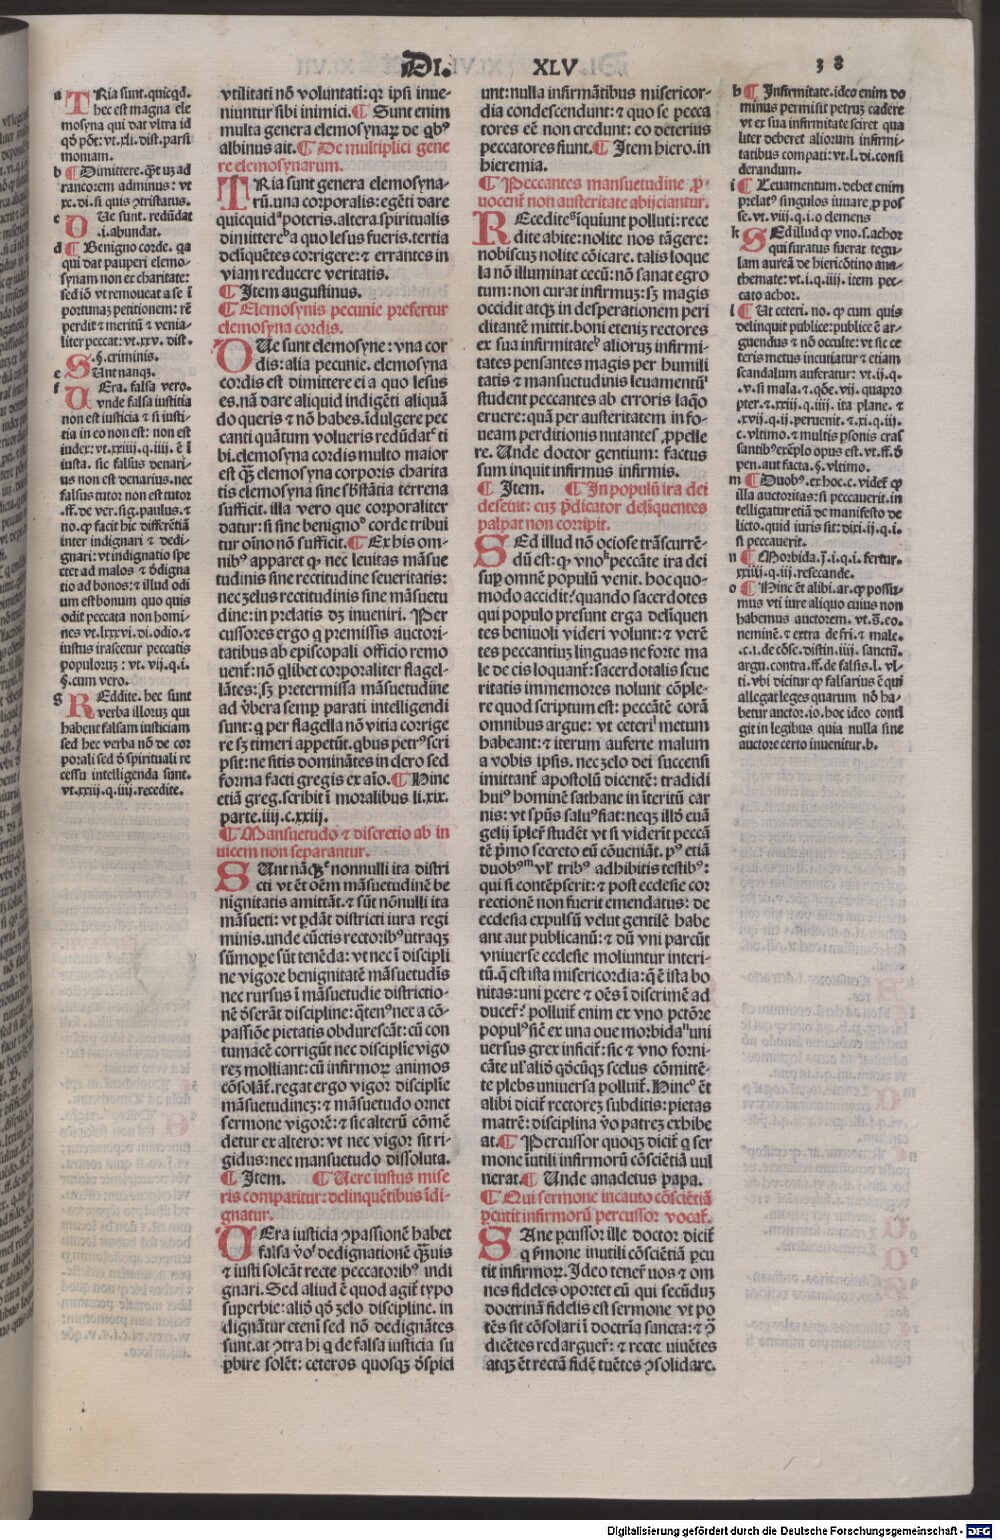 DI. XLV 38
a TRia sunt. quicqd̄.
hec est magna ele
mosyna qui dat vltra id
qd̄ pōt: vt. xli. dist. parsi
moniam.
b ¶ Dimittere. qr̄t uz ad
rancorem adminus: vt
xc. di. si quis ↄtristatus.
c DUe sunt. redūdat
.i. abundat.
d ¶ Benigno corde. qa
qui dat pauperi elemo
synam non ex charitate:
sed iō vt remoueat a se ī
portunaꝫ petitionem: rē
perdit ⁊ meritū ⁊ venia-
liter peccat: vt. xxv. dist.
§. criminis.
e SUnt nanqꝫ.
f UEra. falsa vero.
vnde falsa iustitia
non est iusticia ⁊ si iusti-
tia in eo non est: non est
iudex: vt. xxiiii. q. iiii. ē ī
iusta. sic falsus denari-
us non est denarius. nec
falsus tutor non est tutor
.ff. de ver. sig. paulus. ⁊
no. ꝙ facit hic differētiā
inter indignari ⁊ dedi-
gnari: vt indignatio spe
ctet ad malos ⁊ ō̄digna
tio ad bonos: ⁊ illud odi
um est bonum quo quis
odit peccata non homi-
nes vt. lxxxvi. di. odio. ⁊
iustus irascetur peccatis
populoruꝫ: vt. vij. q. i.
§. cum vero.
g REddite. hec sunt
verba illoruꝫ qui
habent falsam iusticiam
sed hec verba nō de cor
porali sed ō̄ spirituali re
cessu intelligenda sunt.
vt. xxij. q. iiij. recedite.
vtilitati nō voluntati: qr ipsi inue-
niuntur sibi inimici. ¶ Sunt enim
multa genera elemosynaꝝ de qbꝰ
albinus ait. ¶ De multiplici gene
re elemosynarum.
TRia sunt genera elemosyna-
rū. una corporalis: egēti dare
quicquid ᵃpoteris. altera spiritualis
dimittereᵇ a quo lesus fueris. tertia
deliquētes corrigere: ⁊ errantes in
viam reducere veritatis.
¶ Item augustinus.
¶ Elemosynis pecunie prefertur
elemosyna cordis.
DUe sunt elemosyne: vna cor
dis: alia pecunie. elemosyna
cordis est dimittere ei a quo lesus
es. nā dare aliquid indigēti aliquā
do queris ⁊ nō habes. īdulgere pec
canti quātum volueris redūdatᶜ ti
bi. elemosyna cordis multo maior
est qꝫ elemosyna corporis charita
tis elemosyna sine sbstātia terrena
sufficit. illa vero que corporaliter
datur: si sine benignoᵈ corde tribui
tur oīno nō sufficit. ¶ Ex his om-
nibꝰ apparet ꝙ nec leuitas māsue
tudinis sine rectitudine seueritatis:
nec zelus rectitudinis sine māsuetu
dine: in prelatis dꝫ inueniri. Per
cussores ergo q premissis auctori-
tatibus ab episcopali officio remo
uenť: nō qlibet corporaliter flagel-
lātes: sꝫ pretermissa māsuetudine
ad v̄bera semꝑ parati intelligendi
sunt: q per flagella nō vitia corrige
re sꝫ timeri appetūt. qbus petrꝰ scri
psit: ne sitis dominātes in clero sed
forma facti gregis ex aīo. ¶ Hinc
etiā greg. scribit ī moralibus li. xix.
parte. iiij. c. xxiij.
¶ Mansuetudo ⁊ discretio ab in
uicem non separantur.
SUnt nāqꝫᵉ nonnulli ita distri
cti vt ēt oēm māsuetudinē be
nignitatis amittāt. ⁊ sūt nōnulli ita
māsueti: vt ꝑdāt districti iura regi
minis. unde cūctis rectoribꝰ utraqꝫ
sūmope sūt tenēda: vt nec ī discipli
ne vigore benignitatē māsuetudīs
nec rursus ī māsuetudie districtio-
nē ō̄serāt discipline: qtenꝰ nec a cō-
passiōe pietatis obdurescāt: cū con
tumacē corrigūt nec disciplie vigo
reꝫ molliant: cū infirmoꝝ animos
cōsolāť. regat ergo vigor disciplie
māsuetudineꝫ: ⁊ māsuetudo ornet
sermone vigorē: ⁊ sic alterū cōmē
detur ex altero: vt nec vigor sit ri-
gidus: nec mansuetudo dissoluta.
¶ Item. ¶ Uere iustus mise
ris compatitur: delinquētibus īdi-
gnatur.
UEra iusticia ↄpassionē habet
falsa v̄oᶠ dedignationē qꝫuis
⁊ iusti soleāt recte peccatoribꝰ indi
gnari. Sed aliud ē quod agiť typo
superbie: aliō qō zelo discipline. in
dignātur eteni sed nō dedignātes
sunt. at ↄtra hi q de falsa iusticia su
ꝑbire solēt: ceteros quosqꝫ ō̄spici
unt: nulla infirmātibus misericor-
dia condescendunt: ⁊ quo se pecca
tores eē non credunt: eo deterius
peccatores fiunt. ¶ Item hiero. in
hieremia.
¶ Peccantes mansuetudine ꝓ-
uocenť non austeritate abijciantur.
REcediteᵍ inquiunt polluti: rece
dite abite: nolite nos tāgere:
nobiscuꝫ nolite cōicare. talis loque
la nō illuminat cecū: nō sanat egro
tum: non curat infirmuꝫ: sꝫ magis
occidit atqꝫ in desperationem peri
clitantē mittit. boni etenīꝫ rectores
ex sua infirmitateʰ aliorum infirmi-
tates pensantes magis per humili
tatis ⁊ mansuetudinis leuamentūⁱ
student peccantes ab erroris laqo
eruere: quā per austeritatem in fo-
ueam perditionis nutantes ꝓpelle
re. Unde doctor gentium: factus
sum inquit infirmus infirmis.
¶ Item. ¶ In populū ira dei
deseuit: cuꝫ p̄dicator deliquentes
palpat non corripit.
SEd illud nō ociose trāscurrē-
dū est: ꝙ vnoᵏ peccāte ira dei
suꝑ omnē populū venit. hoc quo-
modo accidit? quando sacerdotes
qui populo presunt erga deliquen
tes beniuoli videri volunt: ⁊ verē
tes peccantiuꝫ linguas ne forte ma
le de cis loquanť: sacerdotalis seue
ritatis immemores nolunt cōple-
re quod scriptum est: peccātē corā
omnibus argue: vt ceteriˡ metum
habeant: ⁊ iterum auferte malum
a vobis ipsis. nec zelo dei succensi
imitanť apostolū dicentē: tradidi
huiꝰ hominē sathane in īteritū car
nis: vt spūs saluꝰ fiat: neqꝫ illō euā
gelij īpleť studēt vt si viderīt peccā
tē p̄mo secreto eū cōueniāt. pꝰ etiā
duobꝰᵐ vl̄ tribꝰ adhibitis testibꝰ:
qui si contēpserit: ⁊ post ecclesie cor
rectionē non fuerit emendatus: de
ecclesia expulsū velut gentilē habe
ant aut publicanū: ⁊ dū vni parcūt
vniuerse ecclesie moliuntur interi-
tū. q est ista misericordia: q ē ista bo
nitas: uni ꝑcere ⁊ oēs ī discrimē ad
ducer̄? polluiť enim ex vno pctōre
populꝰ sic ex una oue morbidaⁿ uni
uersus grex inficiť: sic ⁊ vno forni-
cāte ul̄ aliō qōcūqꝫ scelus cōmittē-
te plebs uniuersa polluiť. Hincᵒ ēt
alibi diciť rectoreꝫ subditis: pietas
matrē: disciplina v̄o patreꝫ exhibe
at. ¶ Percussor quoqꝫ diciť q ser
mone īutili infirmorū cōsciētiā vul
nerat. ¶ Unde anacletus papa.
¶ Qui sermone incauto cōsciētiā
ꝑcutit infirmorū percussor vocať.
SAne ꝑcussor ille doctor diciť
q s̄mone inutili cōsciētiā ꝑcu
tit infirmoꝝ. Ideo teneť uos ⁊ om
nes fideles oportet eū qui secūduꝫ
doctrinā fidelis est sermone vt po
tēs sit cōsolari ī doctrīa sancta: ⁊ ↄ̄
dicētes redargueť: ⁊ recte viuētes
atqꝫ ēt rectā fidē tuētes ↄsolidare.
h ¶ Infirmitate. ideo enim do
minus permisit petruꝫ cadere
vt ex sua infirmitate sciret qua
liter deberet aliorum infirmi-
tatibus compati: vt. l. di. consi
derandum.
i ¶ Leuamentum. debet enim
prelatꝰ singulos iuuare ꝓ pos
se. vt. viij. q. i. o clemens
k SEd illud ꝙ vno. s. achor
qui furatus fuerat regu-
lam aureā de hiericōtino ana-
themate: vt. i. q. iiij. item pec-
cato achor.
l ¶ Ut ceteri. no. ꝙ cum quis
delinquit publice: publice ē ar-
guendus ⁊ nō occulte: vt sic ce
teris metus incutiatur ⁊ etiam
scandalum auferatur: vt. ij. q.
.v. si mala. ⁊. qōe. vij. quapro
pter. ⁊. xxiij. q. iiij. ita plane. ⁊
.xvij. q. ij. peruenit. ⁊. xi. q. iij.
c. vltimo. ⁊ multis psonis cras
santibꝰ exēplo opus est. vt. ff. ō̄
pen. aut facta. §. vltimo.
m ¶ Duobꝰ. ex hoc. c. videť ꝙ
illa auctoritas: si peccauerit. in
telligatur etiā de manifesto de
licto. quid iuris sit: dixi. ij. q. i.
si peccauerit.
n ¶ Morbida. j. i. q. i. fertur.
xxiiij. q. iij. resecande.
o ¶ Hinc ēt alibi. ar. ꝙ possu-
mus vti iure aliquo cuius non
habemus auctorem. vt. s̄. eo.
neminē. ⁊ extra de fri. ⁊ male.
.c. i. de cōse. distin. iiij. sanctū.
argu. contra. ff. de falsis. l. vl-
ti. vbi dicitur ꝙ falsarius ē qui
allegat leges quarum nō ha-
betur auctor. io. hoc ideo conti
git in legibus quia nulla sine
auctore certo inuenitur. b.
Digitalisierung gefördert durch die Deutsche Forschungsgemeinschaft - DFG